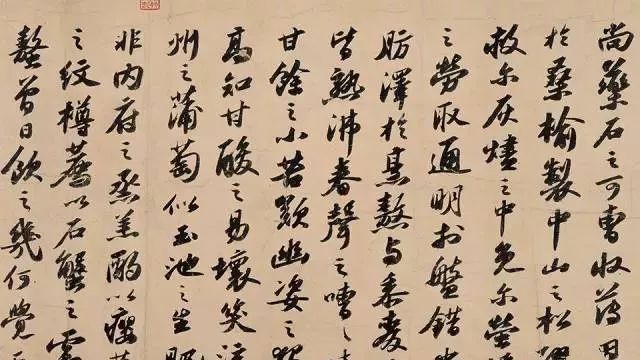 尚藥石之可曹收薄
於桑榆製中山之松
救尔灰燼之中免尔螢
之勞取通明於盤錯
肪澤於烹熬与黍麥
皆熟沸舂聲之嘈
甘餘之小苦歎幽姿之
高知甘酸之易壞笑涼
州之蒲萄似玉池之生
非内府之烝羔酌以癭
之紋樽薦以石蟹之霜
螯曾日飲之幾何覺